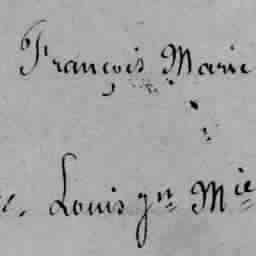 François Marie
Louis gn Mie